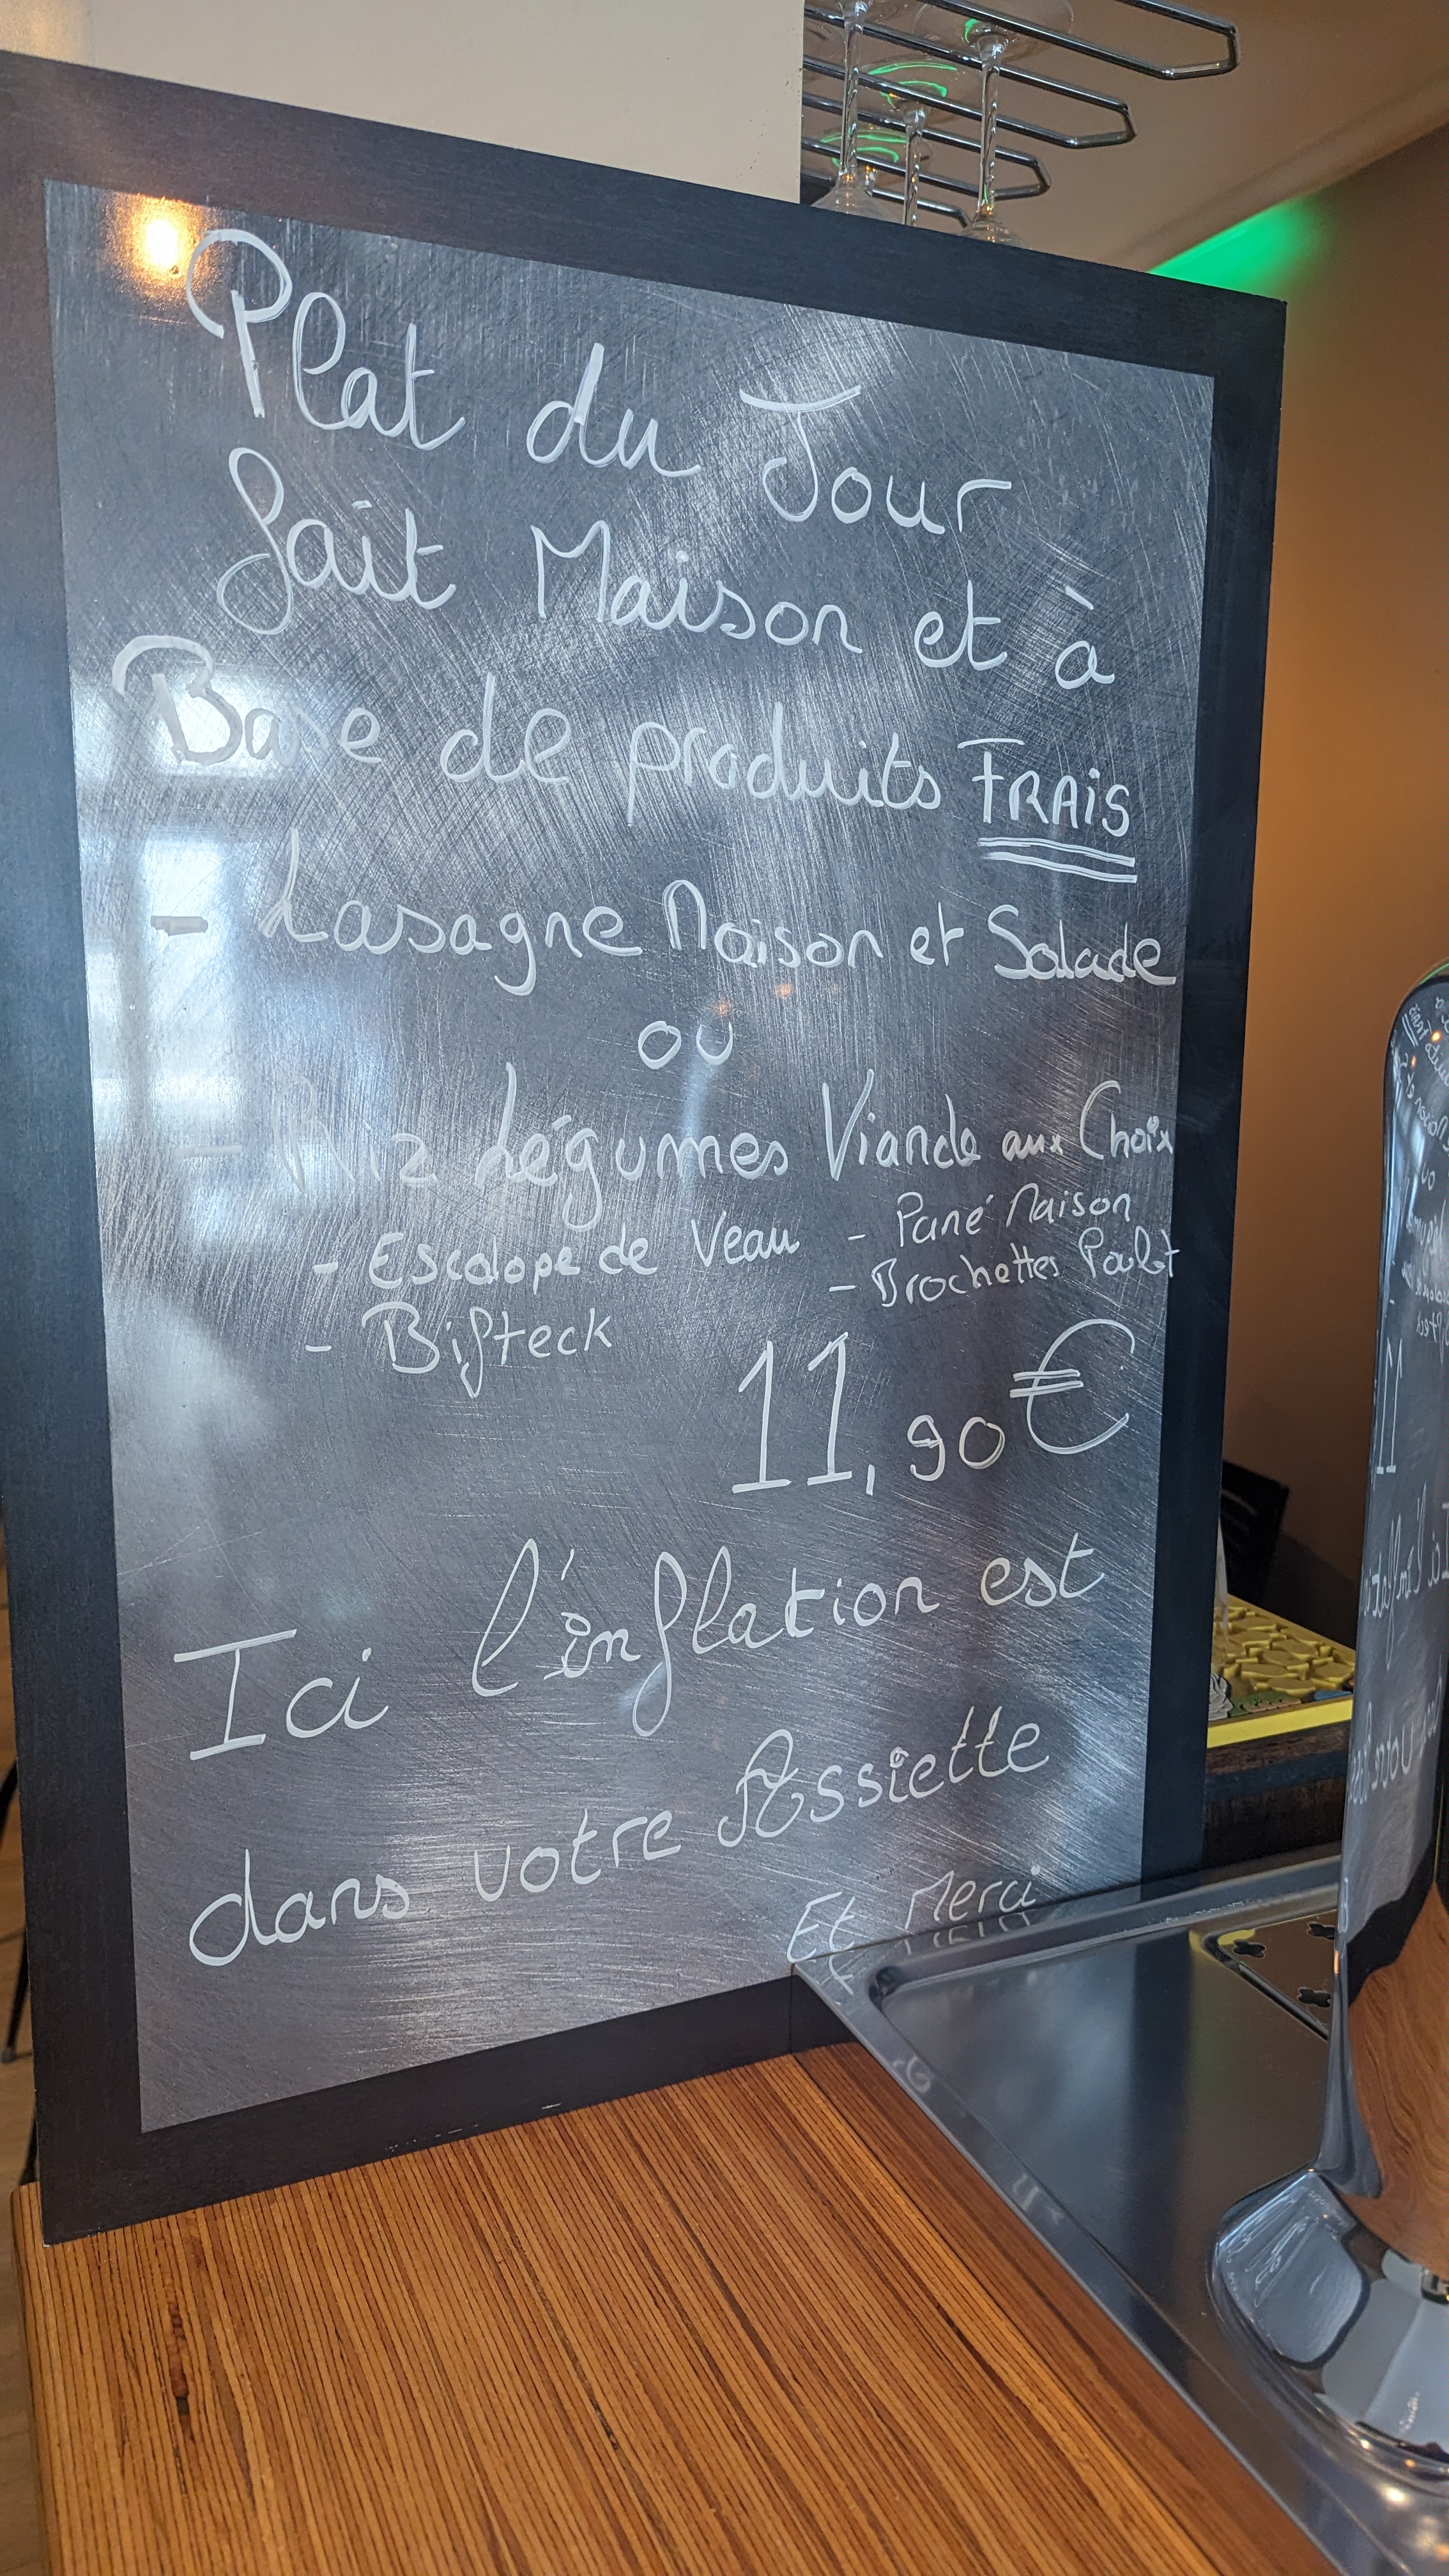 Plat du Jour
fait Maison et à
Base de produits FRAIS
- Lasagne Maison et Salade
ou
- Riz Légumes Viande aux Choix
- Escalope de Veau - Pané Maison
- Bifteck - Brochettes Poulet
11,90€
Ici l'inflation est
dans votre Assiette
Et Merci